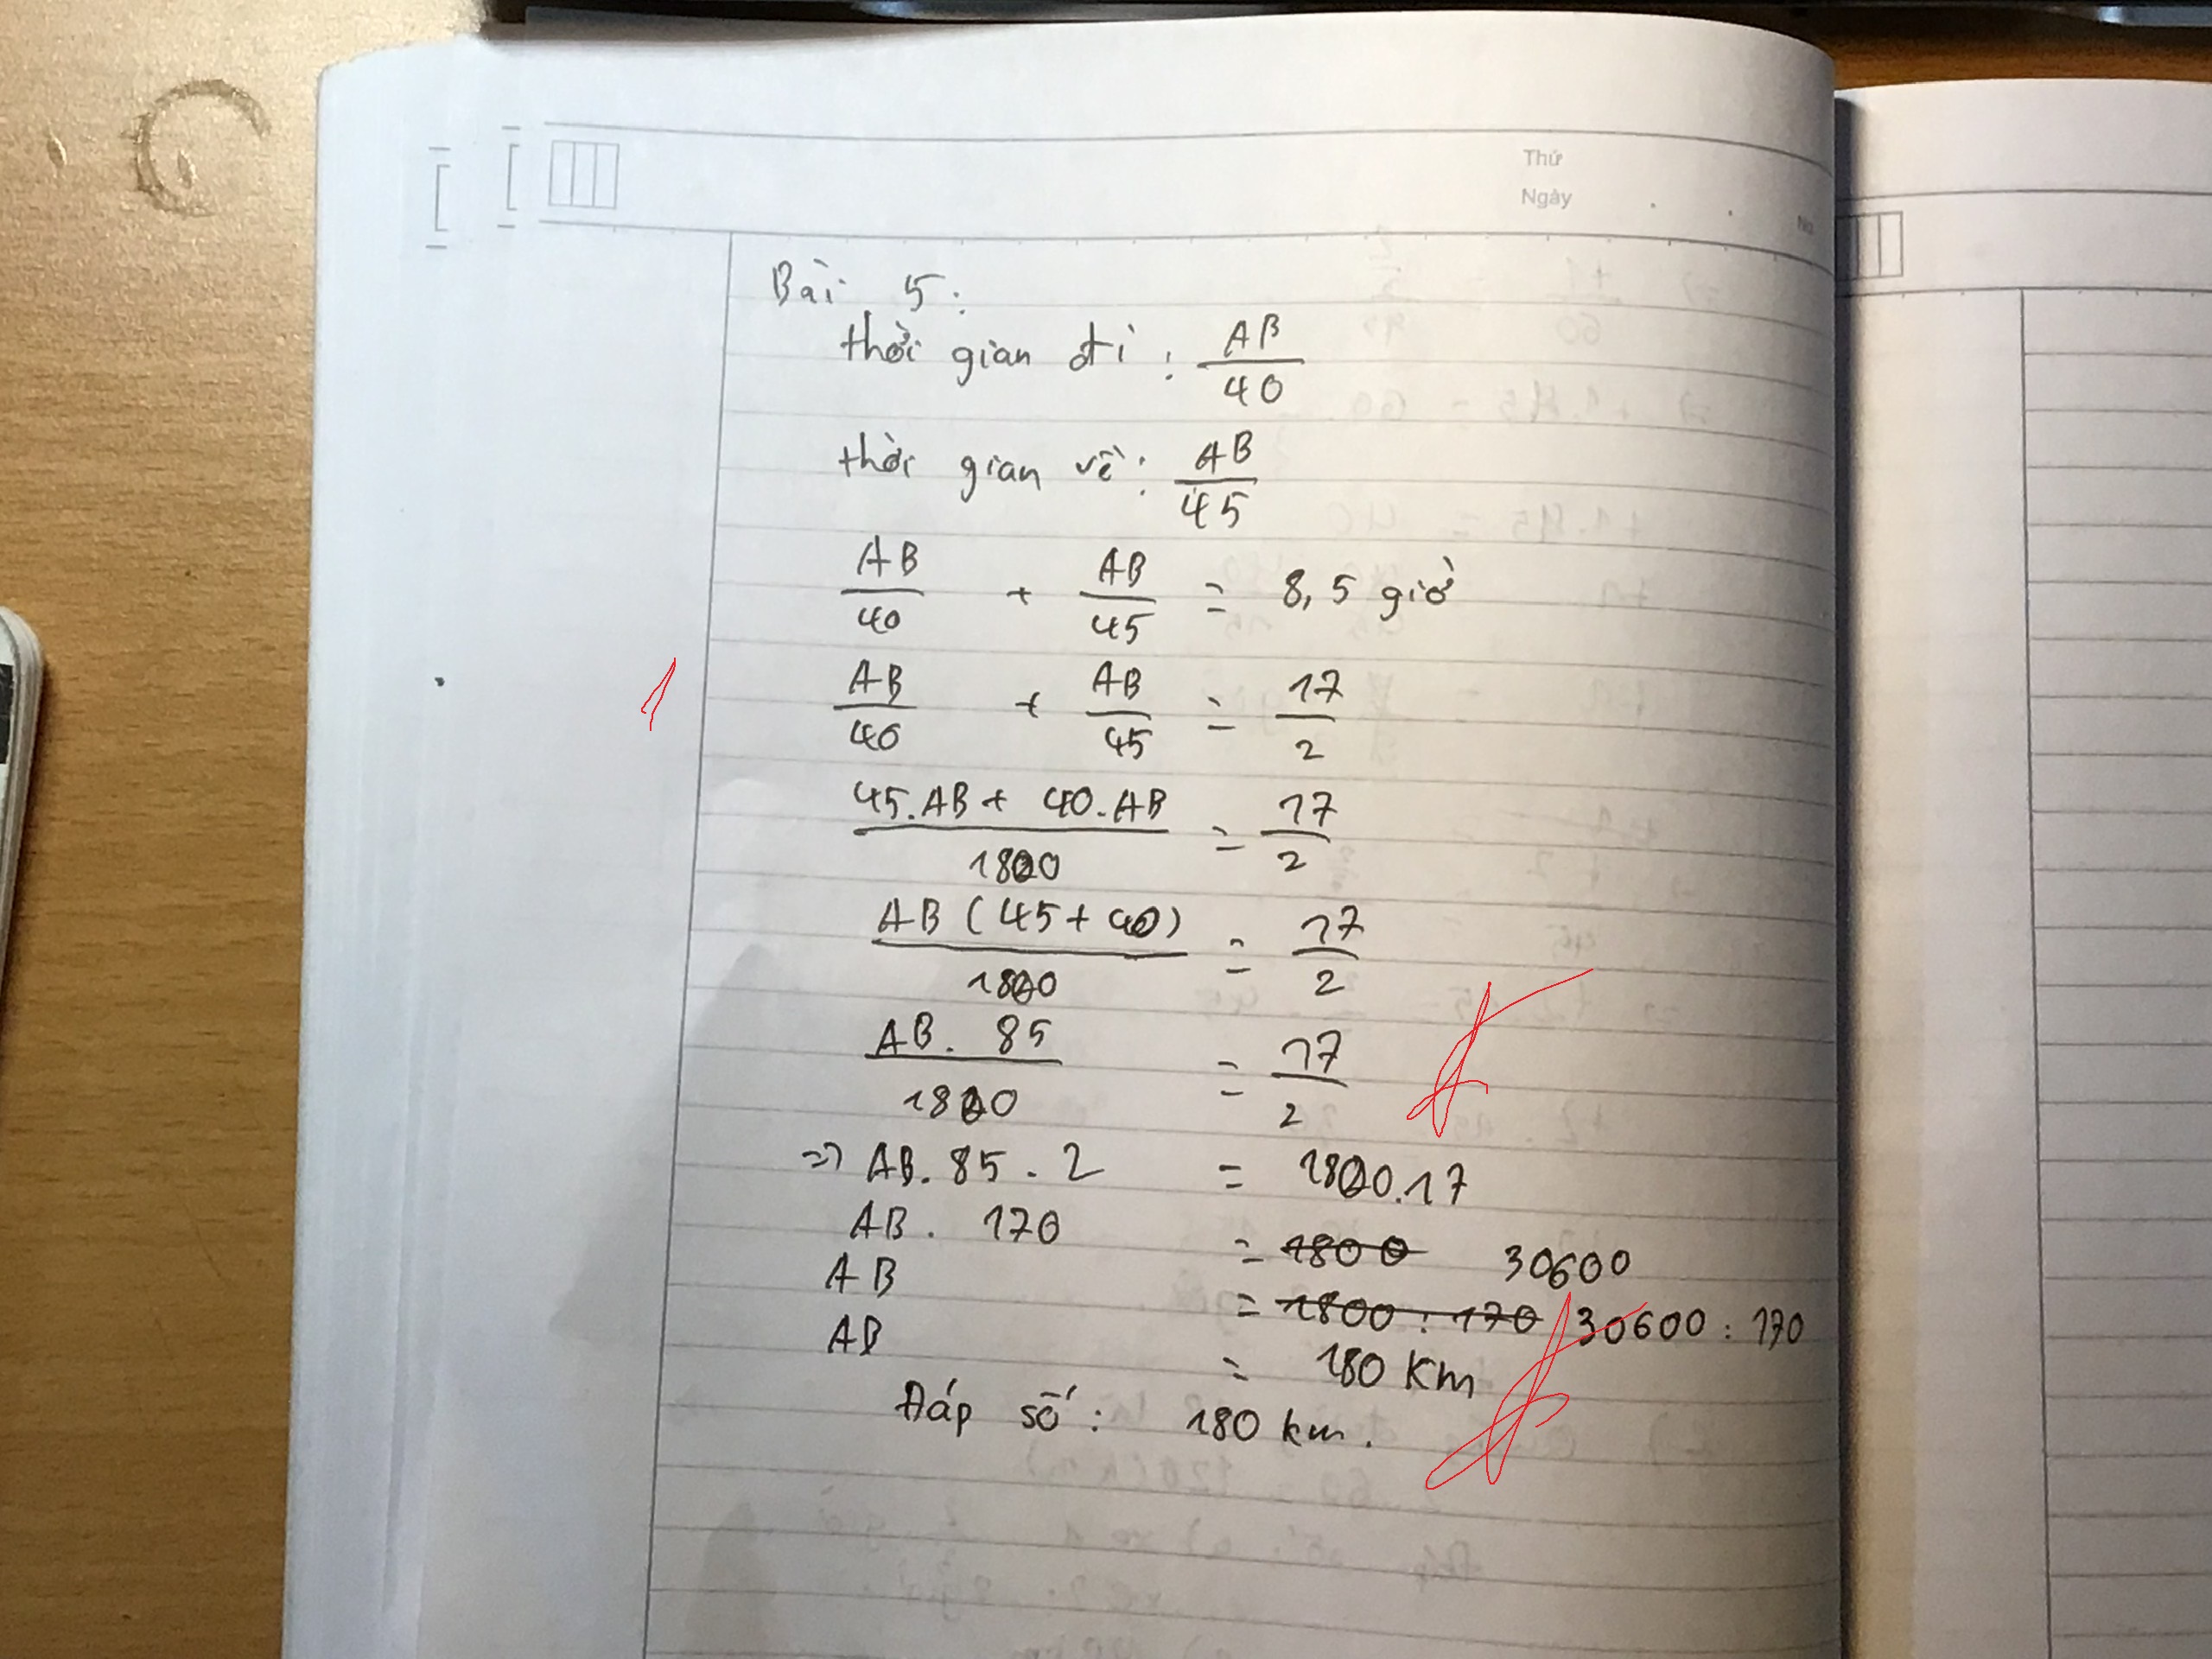 Thứ
Ngày
Bài 5:
thời gian đi : AB/40
thời gian về : AB/45
AB/40 + AB/45 = 8,5 giờ
1
AB/40 + AB/45 = 17/2
45.AB + 40.AB/1800 = 17/2
AB (45 + 40)/1800 = 17/2
AB. 85/1800 = 17/2
=> AB. 85 . 2 = 1800.17
AB. 170 = 1800 30600
AB = 1800 : 170 30600 : 170
AB = 180 Km
Đáp số : 180 km.